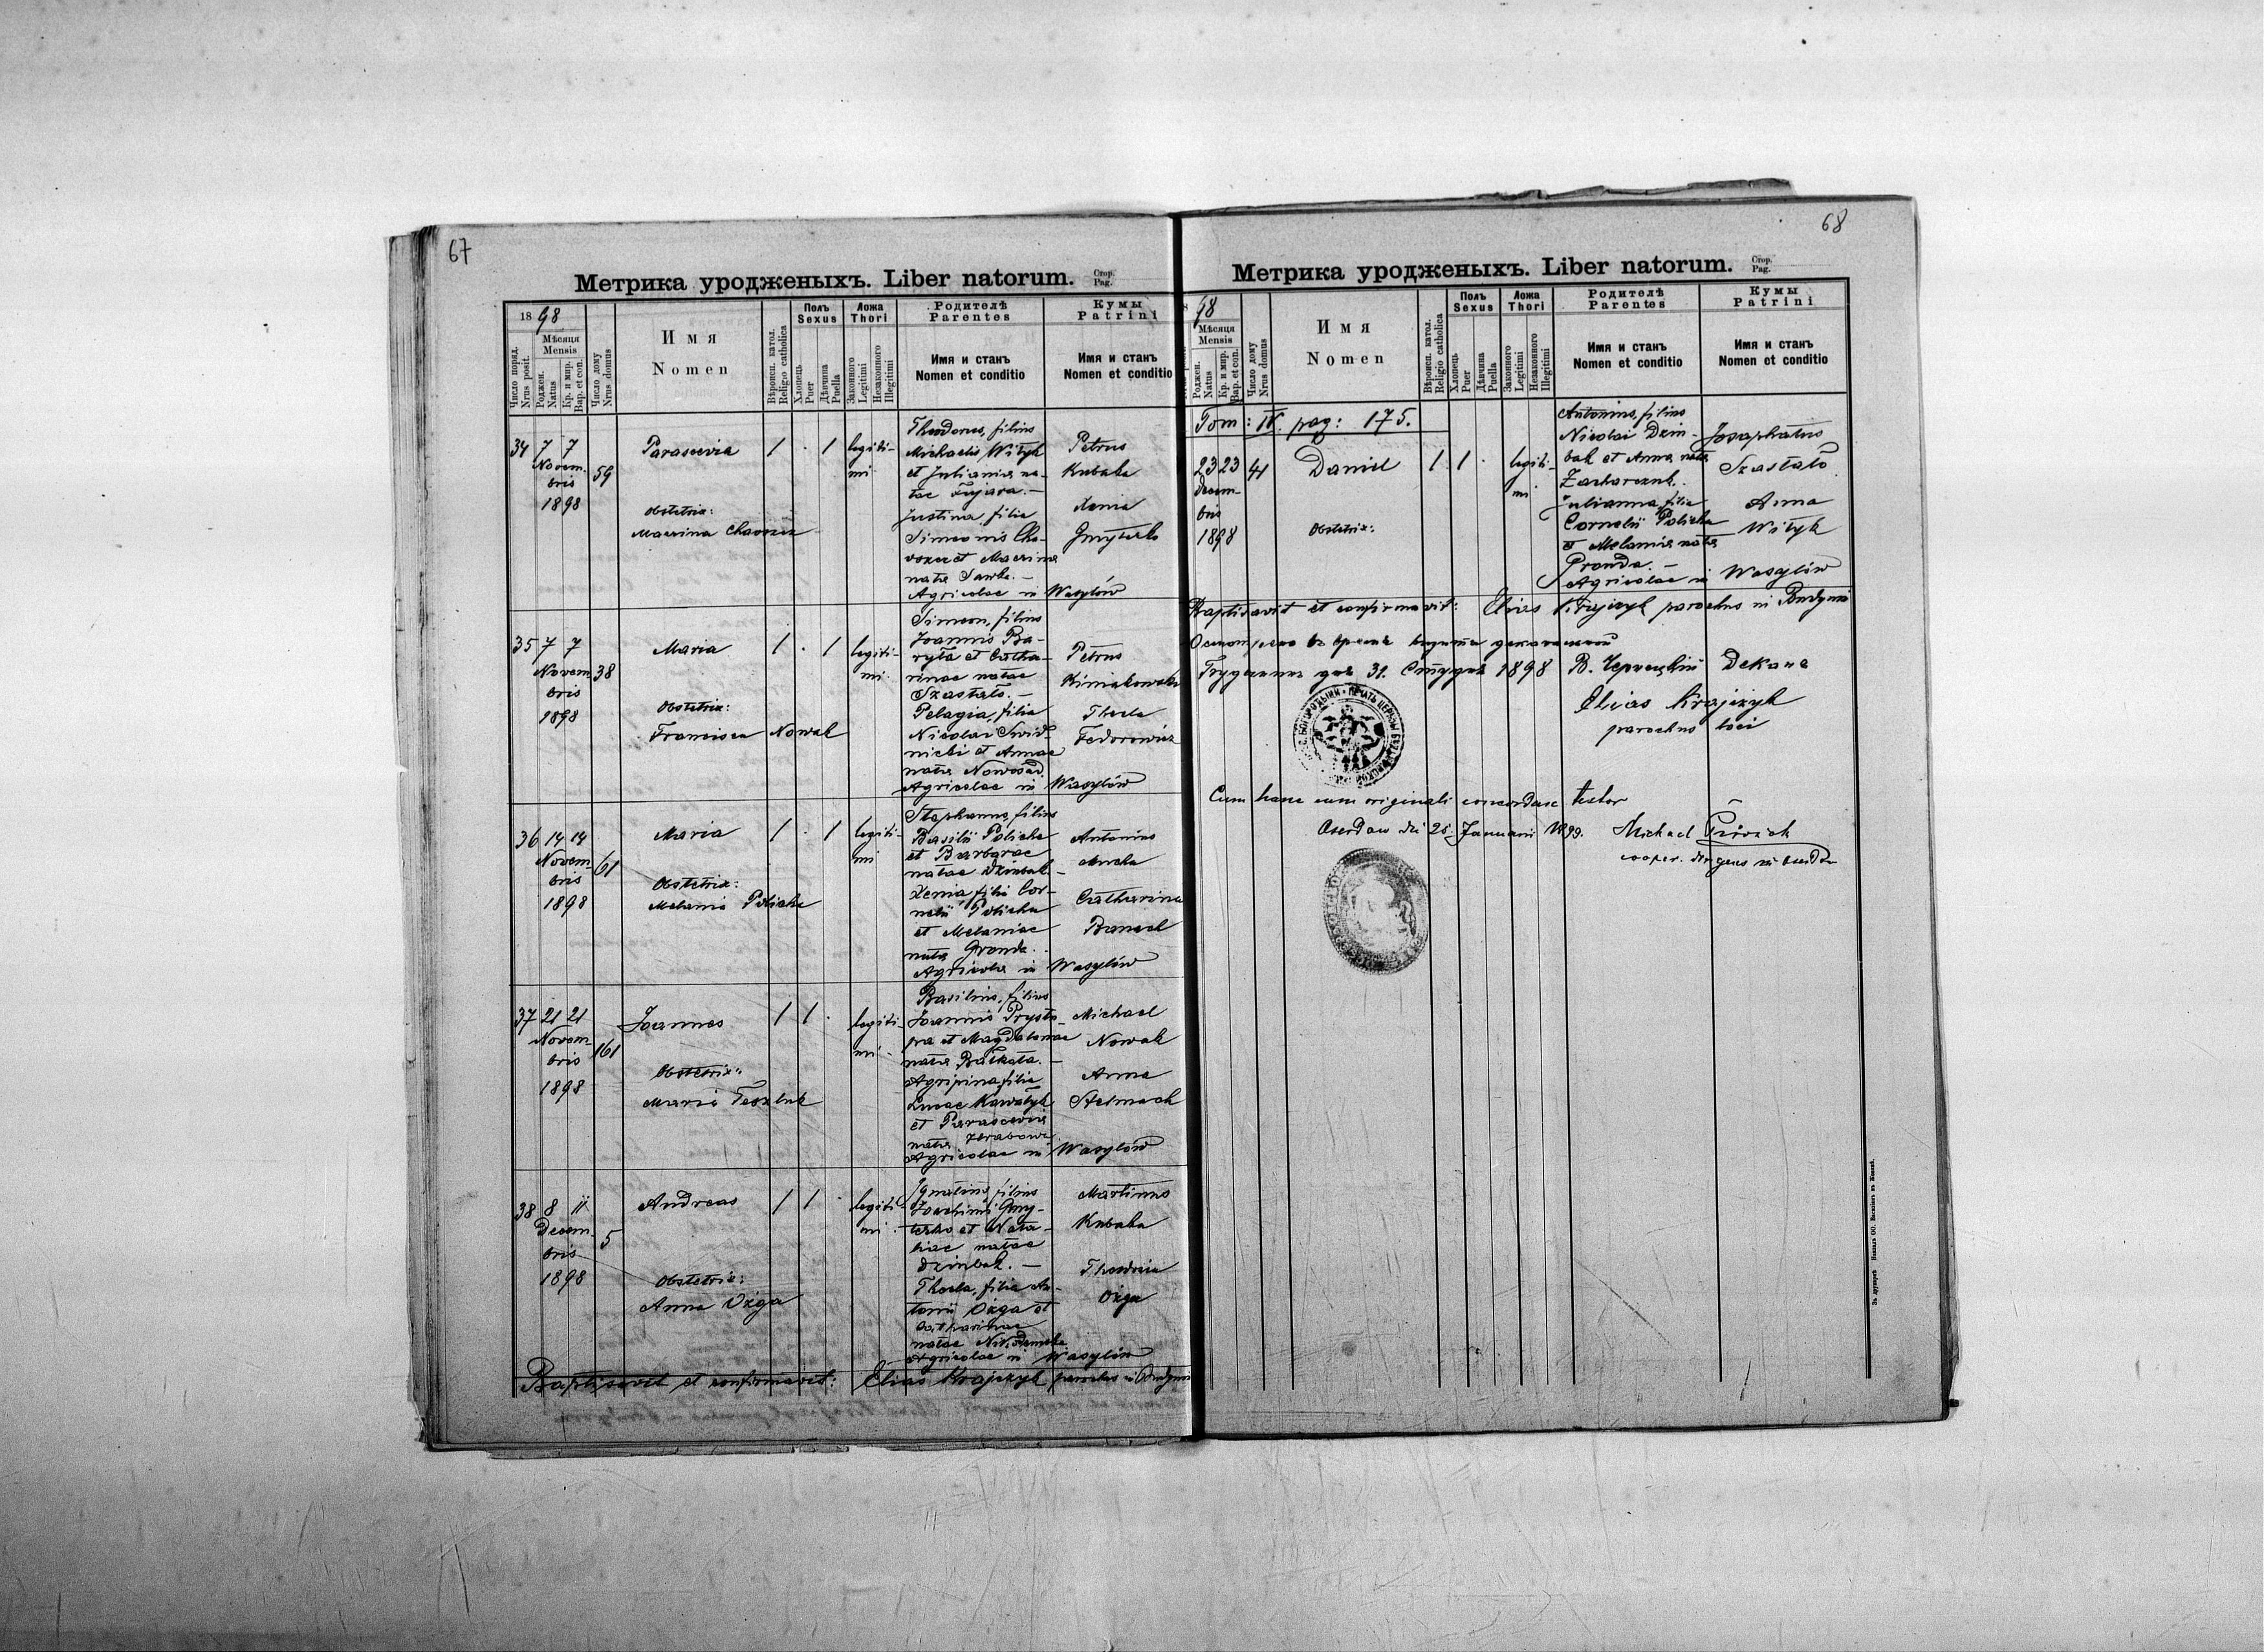 67
Метрика уродженыхъ. Liber natorum. Стор. Pag.
1898
Число поряд. Nrus posit.
Мѣсяця Mensis
Роджен. Natus
Кр. и мир. Bap. et con.
Число дому Nrus domus
Имя Nomen
Вѣроисп. катол. Religio catholica
Полъ Sexus
Хлопець Puer
Дѣвчина Puella
Ложа Thori
Законного Legitimi
Незаконного Illegitimi
Родителѣ Parentes
Имя и станъ Nomen et conditio
Кумы Patrini
Имя и станъ Nomen et conditio
34 7 7 Novembris 1898 59
Parascevia
1 . 1 legitimi
Obstetrix:
Macrina
Theodorus, filius
Michaelis Wityk
et Julianiæ na-
tae Fujara. —
Justina, filia
Simeonis Cho-
et Macrinæ
natæ
Agricolae in Wasylów
Petrus
Kubaha
Xenia
Gmyterko
35 7 7 Novembris 1898 38
Maria
1 . 1 legitimi
Obstetrix:
Francisca Nowak
Simeon, filius
Joannis Ba-
ryła et Catha-
rinae natae
Szastało. —
Pelagia, filia
Nicolai Swid-
nicki et Annae
natæ Nowosad.
Agricolae in Wasylów
Petrus
Thecla
Fedorowicz
36 14 14 Novembris 1898 61
Maria
1 . 1 legitimi
Obstetrix:
Melania Policha
Stephanus, filius
Basilii Policha
et Barbarae
natae Dzinbak —
Xenia, filia Cor-
nelii Policha
et Melaniae
natæ Gronda.
Agricolæ in Wasylów
Antonius
Catharina
37 21 21 Novembris 1898 161
Joannes
1 1 . legitimi
Obstetrix:
Maria
Basilius, filius
Joannis Prystu-
pa et Magdalenae
natæ
Agripina, filia
Lucae Kawałyk
et Parasceviæ
natæ
Agricolae in Wasylów
Michael
Nowak
Anna
Stelmach
38 8 11 Decembris 1898 5
Andreas
1 1 . legitimi
Obstetrix:
Anna Ożga
Ignatius, filius
Joachimi Gmy-
terko et Nata-
liae natae
Dzinbak. —
Thecla, filia An-
tonii Ożga et
Catharinae
natae
Agricolae in Wasylów
Martinus
Kubaha
Ożga
Baptisavit et confirmavit: Elias Krajczyk parochus in Budynin
68
Метрика уродженыхъ. Liber natorum. Стор. Pag.
98
Мѣсяця Mensis
Роджен. Natus
Кр. и мир. Bap. et con.
Число дому Nrus domus
Имя Nomen
Вѣроисп. катол. Religio catholica
Полъ Sexus
Хлопець Puer
Дѣвчина Puella
Ложа Thori
Законного Legitimi
Незаконного Illegitimi
Родителѣ Parentes
Имя и станъ Nomen et conditio
Кумы Patrini
Имя и станъ Nomen et conditio
Tom: IV. pag: 175.
23 23 Decembris 1898 41
Daniel
1 1 . legitimi
Obstetrix:
Antonius, filius
Nicolai Dzin-
bak et Annæ natæ
Zacharczuk.
Julianna, filia
Cornelii Policha
et Melaniæ natæ
Gronda. —
Agricolae in Wasylów
Josaphatus
Szastało
Anna
Wityk
Baptisavit et confirmavit: Elias Krajczyk parochus in Budynin
дня 31. Студня 1898
Elias Krajczyk
parochus loci
Cum hanc cum originali concordare testor
Januarii 1899. Michael
cooper.